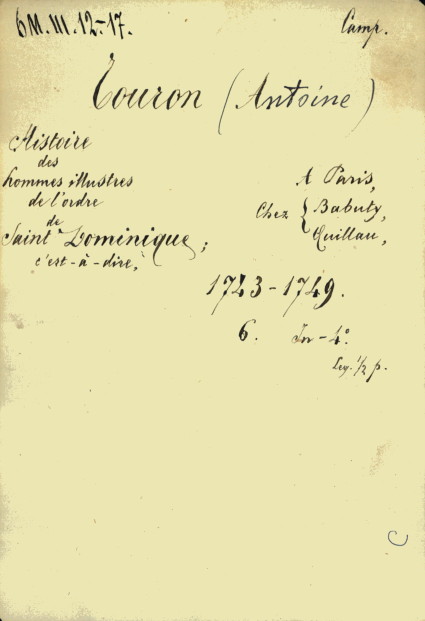 6M.III.12-17.
Camp.
Touron (Antoine)
Histoire
des
hommes illustres
de l'ordre
de
Saint Dominique;
c'est-à-dire,
A Paris,
Chez { Babuty,
Quillau,
1743-1749.
6. In-4°.
1/2 p.
C